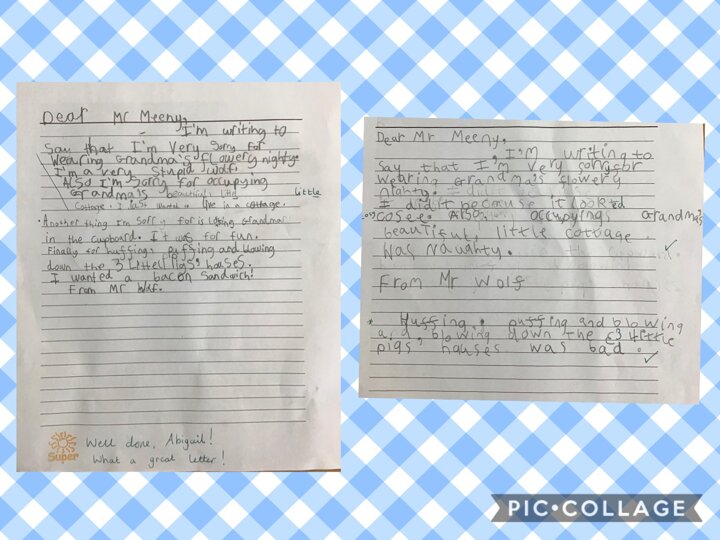 Dear Mr Meeny,
I'm writing to
Say that I'm Very Sorry for
Wearing Grandma's flowery nighty.
I'm a very Stupid Wolf.
Also I'm Sorry for occupying
Grandma's beautiful little
Cottage. I just wanted to live in a cottage.
Another thing I'm Sorry for is locking Grandma
in the cupboard. It was for fun.
Finally for huffing, puffing and blowing
down the 3 Littell Pigs' houses.
I wanted a bacon Sandwich!
From Mr Wolf.
Super
Well done, Abigail!
What a great letter!
Dear Mr Meeny.
I'm writing to
Say that I'm very sorry for
Wearing Grandma's flowery
nighty.
I did it because it looked
cosee. Also occupying Grandma's
beautiful little cottage.
Was Naughty.
From Mr Wolf
* Huffing, puffing and blowing
and blowing down the 3 little
pigs' houses was bad.
PIC•COLLAGE